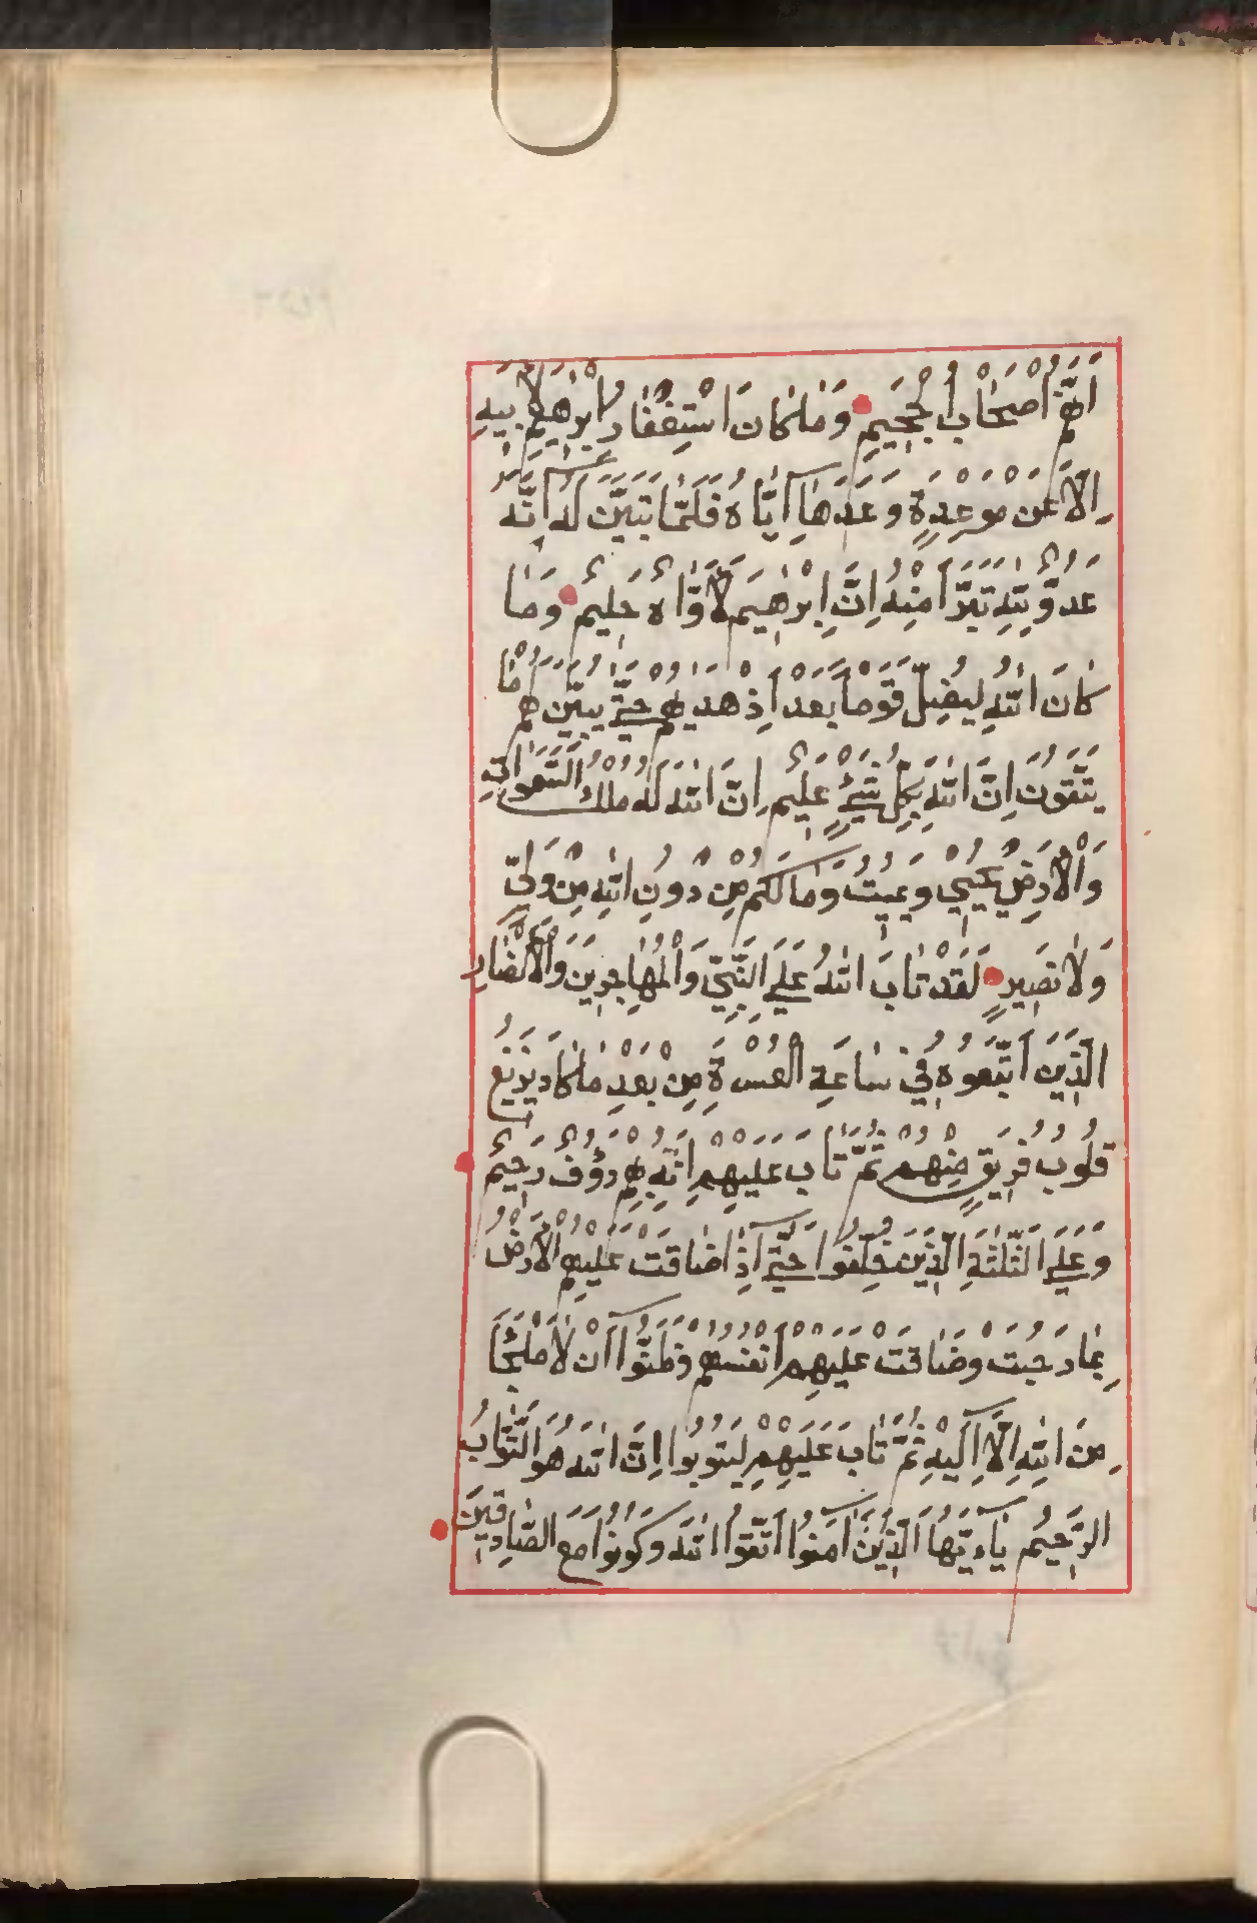 اَنَّهُمْ اَصْحَابُ الْجَحِيمِ وَمَا كَانَ اسْتِغْفَارُ اِبْرٰهِيمَ لِاَبِيهِ
اِلَّا عَنْ مَوْعِدَةٍ وَعَدَهَا اِيَّاهُ فَلَمَّا تَبَيَّنَ لَهُ اَنَّهُ
عَدُوٌّ لِلّٰهِ تَبَرَّاَ مِنْهُ اِنَّ اِبْرٰهِيمَ لَاَوَّاهٌ حَلِيمٌ وَمَا
كَانَ اللّٰهُ لِيُضِلَّ قَوْمًا بَعْدَ اِذْ هَدٰيهُمْ حَتّٰى يُبَيِّنَ لَهُمْ مَا
يَتَّقُونَ اِنَّ اللّٰهَ بِكُلِّ شَيْءٍ عَلِيمٌ اِنَّ اللّٰهَ لَهُ مُلْكُ السَّمَوَاتِ
وَالْاَرْضِ يُحْيِي وَيُمِيتُ وَمَا لَكُمْ مِنْ دُونِ اللّٰهِ مِنْ وَلِيٍّ
وَلَا نَصِيرٍ لَقَدْ تَابَ اللّٰهُ عَلَى النَّبِيِّ وَالْمُهَاجِرِينَ وَالْاَنْصَارِ
الَّذِينَ اتَّبَعُوهُ فِي سَاعَةِ الْعُسْرَةِ مِنْ بَعْدِ مَا كَادَ يَزِيغُ
قُلُوبُ فَرِيقٍ مِنْهُمْ ثُمَّ تَابَ عَلَيْهِمْ اِنَّهُ بِهِمْ رَؤُفٌ رَحِيمٌ
وَعَلَى الثَّلٰثَةِ الَّذِينَ خُلِّفُوا حَتّٰى اِذَا ضَاقَتْ عَلَيْهِمُ الْاَرْضُ
بِمَا رَحُبَتْ وَضَاقَتْ عَلَيْهِمْ اَنْفُسُهُمْ وَظَنُّوا اَنْ لَا مَلْجَاَ
مِنَ اللّٰهِ اِلَّا اِلَيْهِ ثُمَّ تَابَ عَلَيْهِمْ لِيَتُوبُوا اِنَّ اللّٰهَ هُوَ التَّوَّابُ
الرَّحِيمُ يَا ءَيُّهَا الَّذِينَ اٰمَنُوا اتَّقُوا اللّٰهَ وَكُونُوا مَعَ الصَّادِقِينَ